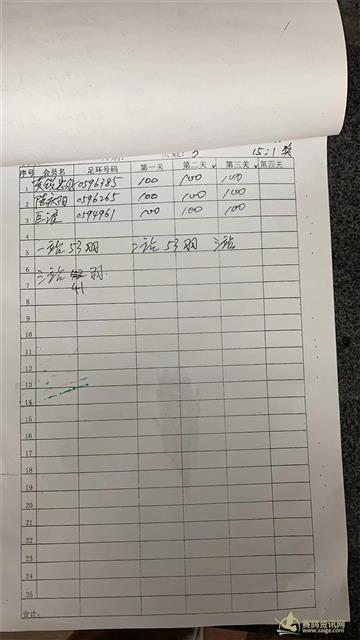 15:1 奖
序号 会员名 足环号码 第一关 第二关 第三关 第四关
1 0596385 100 100 100
2 0596265 100 100 100
3 0594961 100 100 100
4
5 一站 53羽 二站 53羽 三站
6
7 三站 羽
41
8
9
10
11
12
13
14
15
16
17
18
19
20
21
22
23
24
25
合计:
赛鸽资讯网
www.saige.com